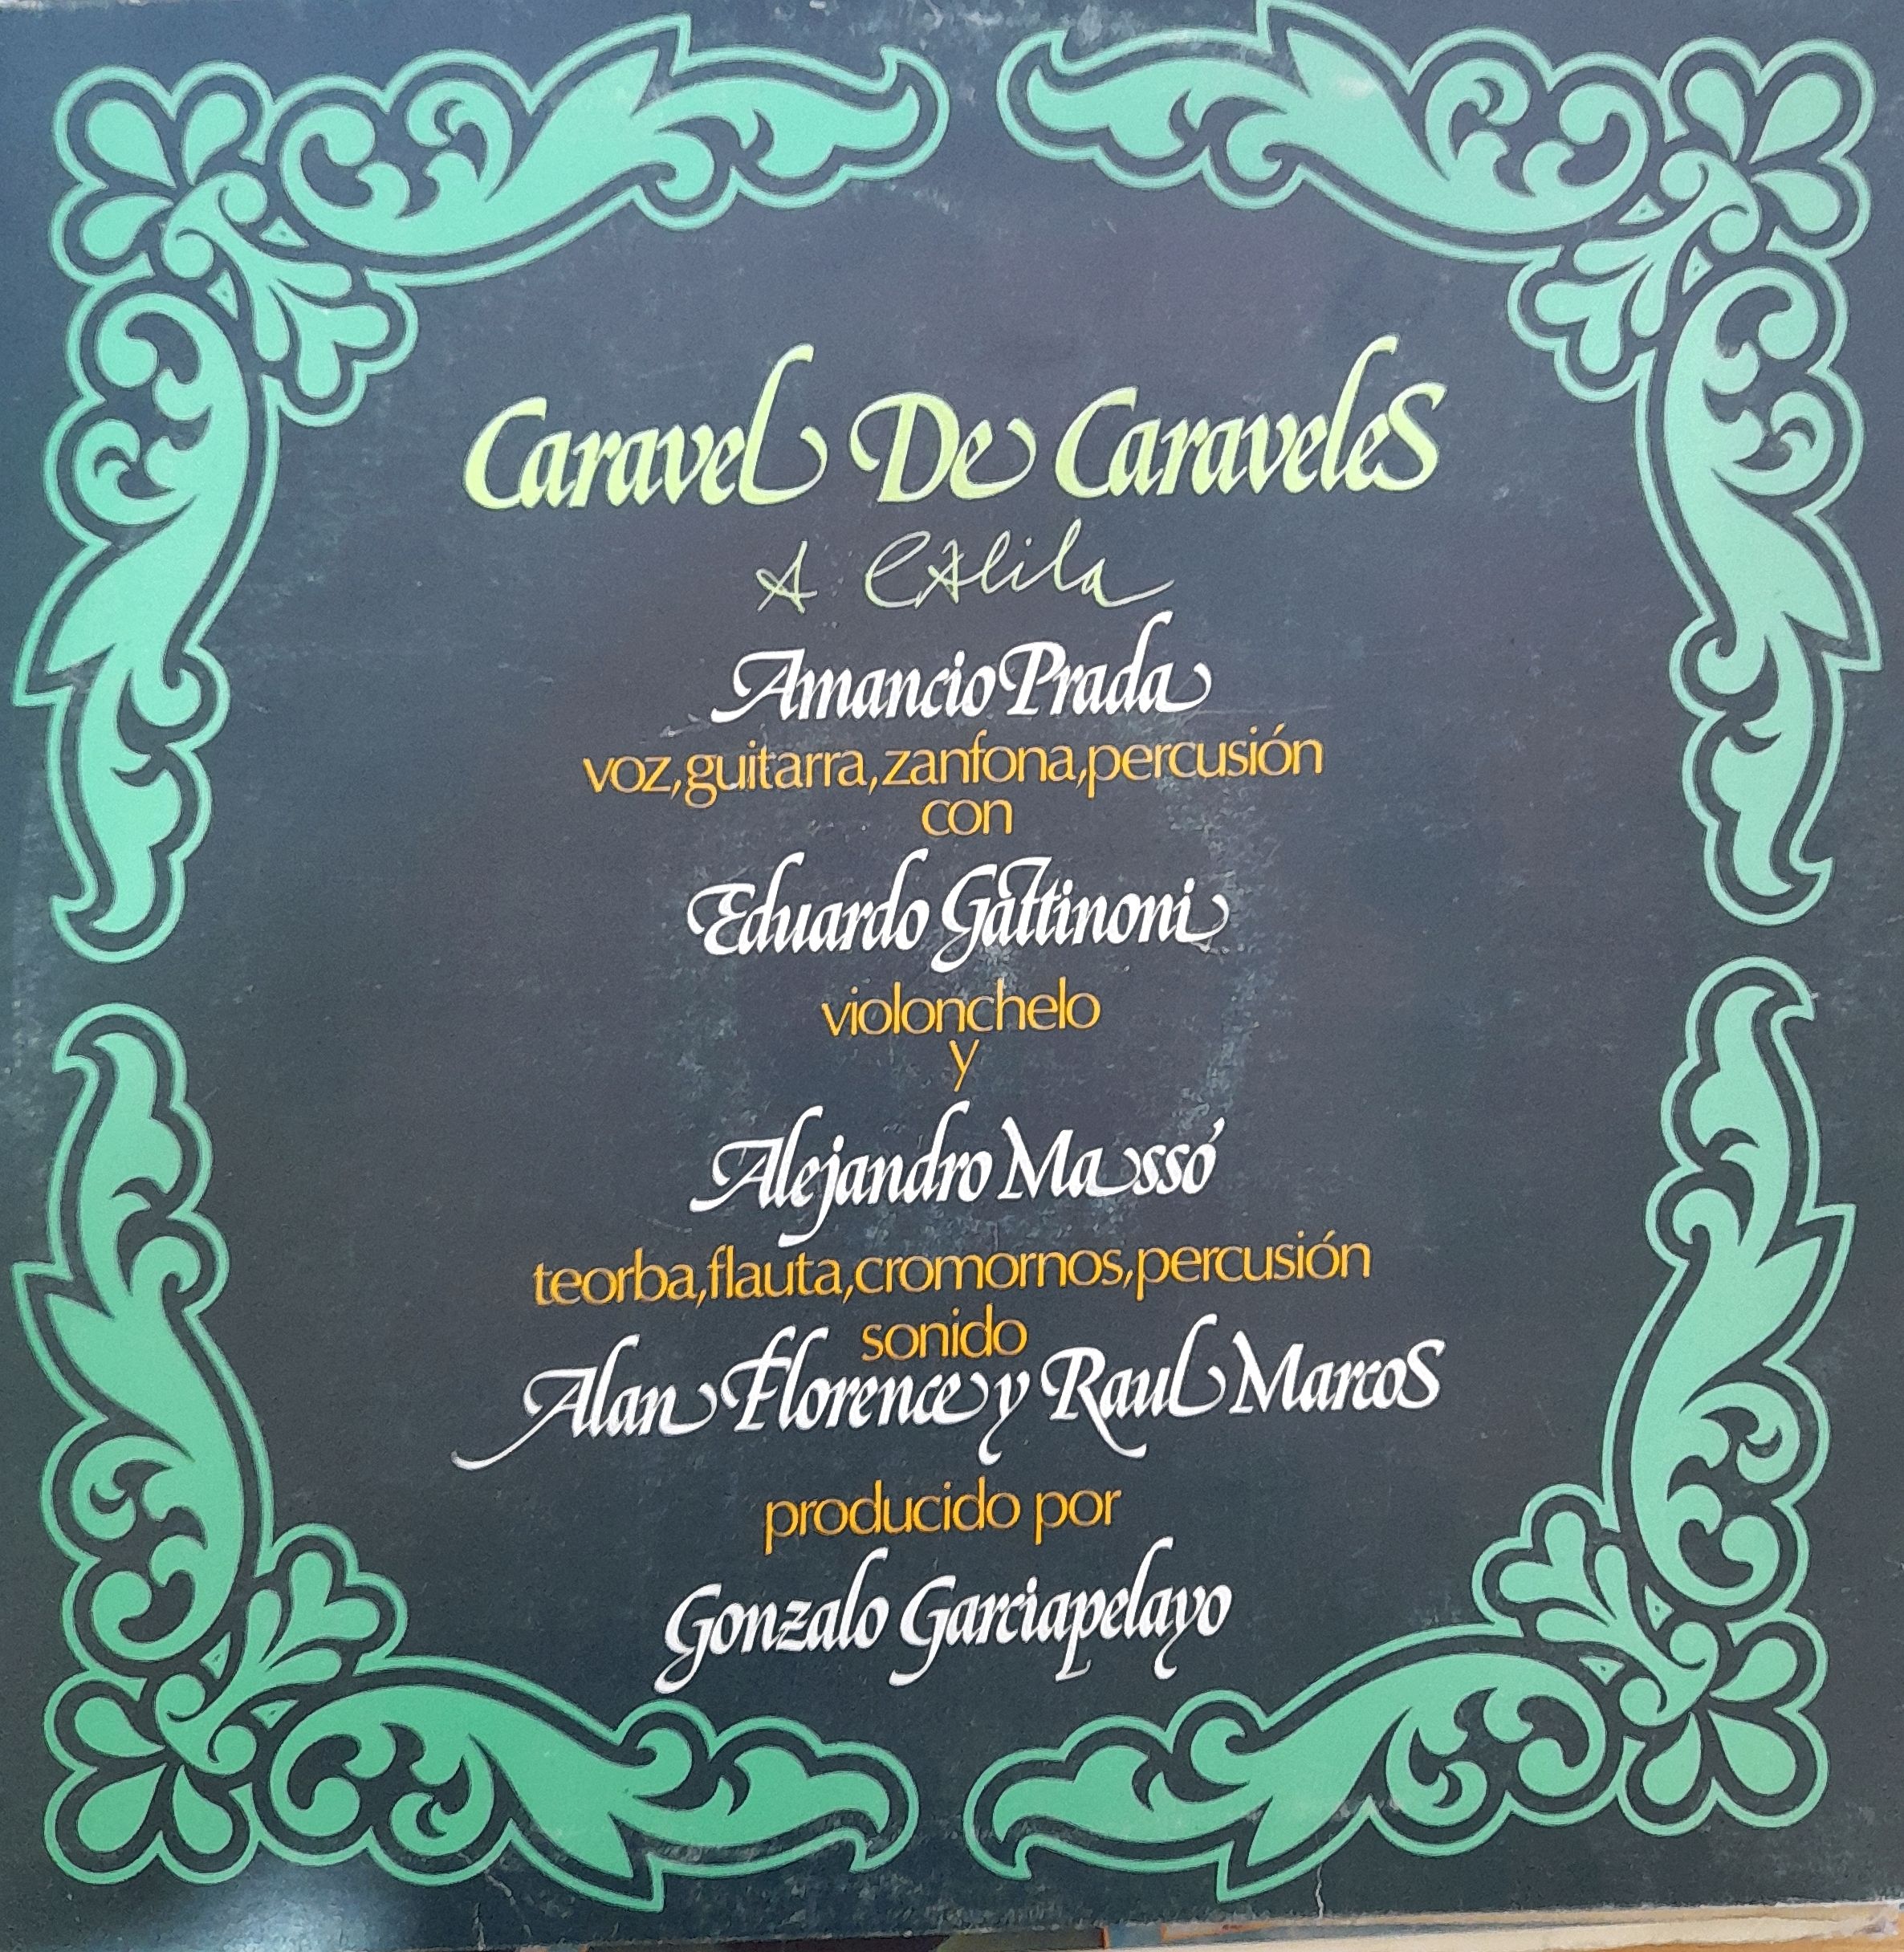 Caravel De Caraveles
A CALila
Amancio Prada
voz,guitarra,zanfona,percusión
con
Eduardo Gattinoni
violonchelo
y
Alejandro Massó
teorba,flauta,cromornos,percusión
sonido
Alan Florence y Raul Marcos
producido por
Gonzalo Garciapelayo